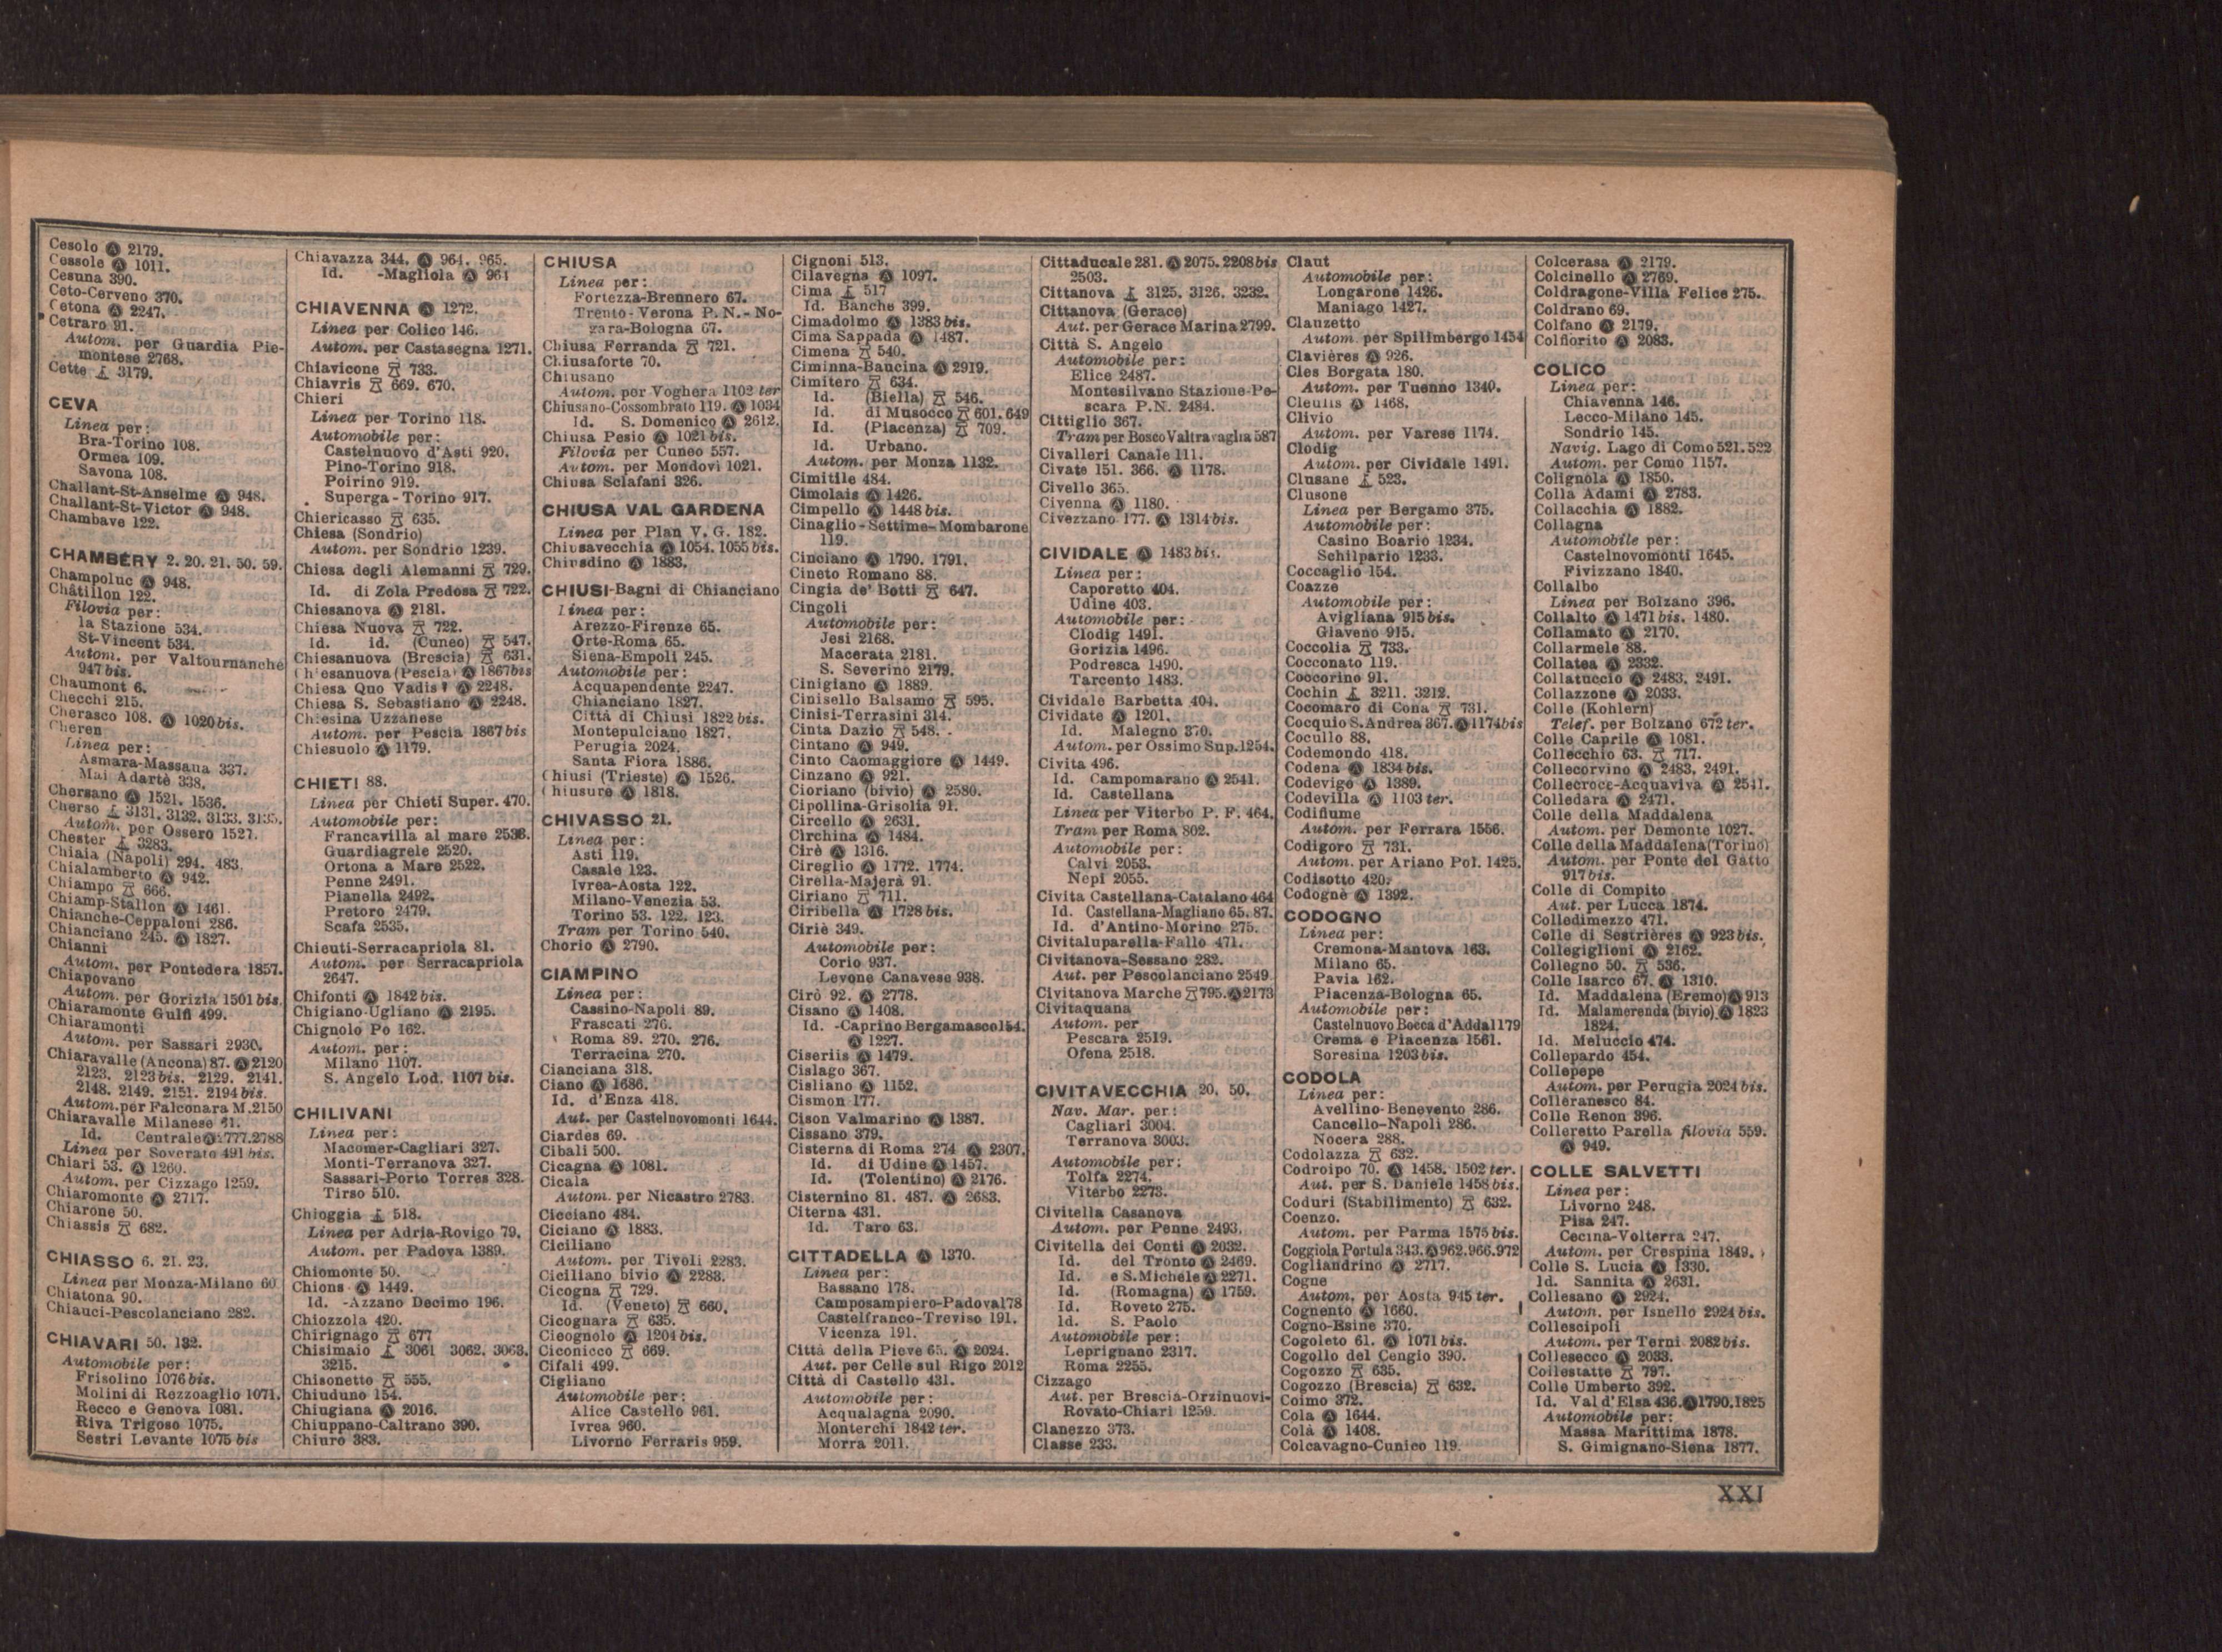 Cesolo Ⓐ 2179.
Cessole Ⓐ 1011.
Cesuna 390.
Ceto-Cerveno 370.
Cetona Ⓐ 2247.
Cetraro 91.
Autom. per Guardia Pie-
montese 2768.
Cette 3179.
CEVA
Linea per:
Bra-Torino 108.
Ormea 109.
Savona 108.
Challant-St-Anselme Ⓐ 948.
Challant-St-Victor Ⓐ 948.
Chambave 122.
CHAMBÉRY 2. 20. 21. 50. 59.
Champoluc Ⓐ 948.
Châtillon 122.
Filovia per:
la Stazione 534.
St-Vincent 534.
Autom. per Valtournanche
947 bis.
Chaumont 6.
Checchi 215.
Cherasco 108. Ⓐ 1020 bis.
Cheren
Linea per:
Asmara-Massaua 337.
Mai Adartè 338.
Chersano Ⓐ 1521. 1536.
Cherso 3131. 3132. 3133. 3135.
Autom. per Ossero 1527.
Chester 3283.
Chiaia (Napoli) 294. 483.
Chialamberto Ⓐ 942.
Chiampo 666.
Chiamp-Stallon Ⓐ 1461.
Chianche-Ceppaloni 286.
Chianciano 245. Ⓐ 1827.
Chianni
Autom. per Pontedera 1857.
Chiapovano
Autom. per Gorizia 1501 bis.
Chiaramonte Gulfi 499.
Chiaramonti
Autom. per Sassari 2930.
Chiaravalle (Ancona) 87. Ⓐ 2120
2123. 2123 bis. 2129. 2141.
2148. 2149. 2151. 2194 bis.
Autom. per Falconara M. 2150
Chiaravalle Milanese 61.
Id. Centrale Ⓐ 2777. 2788
Linea per Soverato 491 bis.
Chiari 53. Ⓐ 1260.
Autom. per Cizzago 1259.
Chiaromonte Ⓐ 2717.
Chiarone 50.
Chiassis 682.
CHIASSO 6. 21. 23.
Linea per Monza-Milano 60
Chiatona 90.
Chiauci-Pescolanciano 282.
CHIAVARI 50. 132.
Automobile per:
Frisolino 1076 bis.
Molini di Rezzoaglio 1071.
Recco e Genova 1081.
Riva Trigoso 1075.
Sestri Levante 1075 bis
Chiavazza 344. Ⓐ 964. 965.
Id. -Magliola Ⓐ 964
CHIAVENNA Ⓐ 1272.
Linea per Colico 146.
Autom. per Castasegna 1271.
Chiavicone 733.
Chiavris 669. 670.
Chieri
Linea per Torino 118.
Automobile per:
Castelnuovo d'Asti 920.
Pino-Torino 918.
Poirino 919.
Superga - Torino 917.
Chiericasso 635.
Chiesa (Sondrio)
Autom. per Sondrio 1239.
Chiesa degli Alemanni 729.
Id. di Zola Predosa 722.
Chiesanova Ⓐ 2181.
Chiesa Nuova 722.
Id. id. (Cuneo) 547.
Chiesanuova (Brescia) 631.
Chiesanuova (Pescia) Ⓐ 1867 bis
Chiesa Quo Vadis? Ⓐ 2248.
Chiesa S. Sebastiano Ⓐ 2248.
Chiesina Uzzanese
Autom. per Pescia 1867 bis
Chiesuolo Ⓐ 1179.
CHIETI 88.
Linea per Chieti Super. 470.
Automobile per:
Francavilla al mare 2538.
Guardiagrele 2520.
Ortona a Mare 2522.
Penne 2491.
Pianella 2492.
Pretoro 2479.
Scafa 2535.
Chieuti-Serracapriola 81.
Autom. per Serracapriola
2647.
Chifonti Ⓐ 1842 bis.
Chigiano-Ugliano Ⓐ 2195.
Chignolo Po 162.
Autom. per:
Milano 1107.
S. Angelo Lod. 1107 bis.
CHILIVANI
Linea per:
Macomer-Cagliari 327.
Monti-Terranova 327.
Sassari-Porto Torres 328.
Tirso 510.
Chioggia 518.
Linea per Adria-Rovigo 79.
Autom. per Padova 1389.
Chiomonte 50.
Chions Ⓐ 1449.
Id. -Azzano Decimo 196.
Chiozzola 420.
Chirignago 677
Chisimaio 3061 3062. 3063.
3215.
Chisonetto 555.
Chiuduno 154.
Chiugiana Ⓐ 2016.
Chiuppano-Caltrano 390.
Chiuro 383.
CHIUSA
Linea per:
Fortezza-Brennero 67.
Trento - Verona P. N. - No-
gara-Bologna 67.
Chiusa Ferranda 721.
Chiusaforte 70.
Chiusano
Autom. per Voghera 1102 ter
Chiusano-Cossombrato 119. Ⓐ 1034
Id. S. Domenico Ⓐ 2612.
Chiusa Pesio Ⓐ 1021 bis.
Filovia per Cuneo 557.
Autom. per Mondovì 1021.
Chiusa Sclafani 326.
CHIUSA VAL GARDENA
Linea per Plan V. G. 182.
Chiusavecchia Ⓐ 1054. 1055 bis.
Chiusdino Ⓐ 1883.
CHIUSI-Bagni di Chianciano
Linea per:
Arezzo-Firenze 65.
Orte-Roma 65.
Siena-Empoli 245.
Automobile per:
Acquapendente 2247.
Chianciano 1827.
Città di Chiusi 1822 bis.
Montepulciano 1827.
Perugia 2024.
Santa Fiora 1886.
Chiusi (Trieste) Ⓐ 1526.
Chiusure Ⓐ 1818.
CHIVASSO 21.
Linea per:
Asti 119.
Casale 123.
Ivrea-Aosta 122.
Milano-Venezia 53.
Torino 53. 122. 123.
Tram per Torino 540.
Chorio Ⓐ 2790.
CIAMPINO
Linea per:
Cassino-Napoli 89.
Frascati 276.
Roma 89. 270. 276.
Terracina 270.
Cianciana 318.
Ciano Ⓐ 1686.
Id. d'Enza 418.
Aut. per Castelnovomonti 1644.
Ciardes 69.
Cibali 500.
Cicagna Ⓐ 1081.
Cicala
Autom. per Nicastro 2783.
Cicciano 484.
Ciciano Ⓐ 1883.
Ciciliano
Autom. per Tivoli 2283.
Ciciliano bivio Ⓐ 2283.
Cicogna 729.
Id. (Veneto) 660.
Cicognara 635.
Cicognolo Ⓐ 1204 bis.
Ciconicco 669.
Cifali 499.
Cigliano
Automobile per:
Alice Castello 961.
Ivrea 960.
Livorno Ferraris 959.
Cignoni 513.
Cilavegna Ⓐ 1097.
Cima 517
Id. Banche 399.
Cimadolmo Ⓐ 1383 bis.
Cima Sappada Ⓐ 1487.
Cimena 540.
Ciminna-Baucina Ⓐ 2919.
Cimitero 634.
Id. (Biella) 546.
Id. di Musocco 601. 649
Id. (Piacenza) 709.
Id. Urbano.
Autom. per Monza 1132.
Cimitile 484.
Cimolais Ⓐ 1426.
Cimpello Ⓐ 1448 bis.
Cinaglio - Settime - Mombarone
119.
Cinciano Ⓐ 1790. 1791.
Cineto Romano 88.
Cingia de' Botti 647.
Cingoli
Automobile per:
Jesi 2168.
Macerata 2181.
S. Severino 2179.
Cinigiano Ⓐ 1889.
Cinisello Balsamo 595.
Cinisi-Terrasini 314.
Cinta Dazio 548.
Cintano Ⓐ 949.
Cinto Caomaggiore Ⓐ 1449.
Cinzano Ⓐ 921.
Cioriano (bivio) Ⓐ 2580.
Cipollina-Grisolia 91.
Circello Ⓐ 2631.
Circhina Ⓐ 1484.
Cirè Ⓐ 1316.
Cireglio Ⓐ 1772. 1774.
Cirella-Majerà 91.
Ciriano 711.
Ciribella Ⓐ 1728 bis.
Ciriè 349.
Automobile per:
Corio 937.
Levone Canavese 938.
Cirò 92. Ⓐ 2778.
Cisano Ⓐ 1408.
Id. -Caprino Bergamasco 154.
Ⓐ 1227.
Ciseriis Ⓐ 1479.
Cislago 367.
Cisliano Ⓐ 1152.
Cismon 177.
Cison Valmarino Ⓐ 1387.
Cissano 379.
Cisterna di Roma 274 Ⓐ 2307.
Id. di Udine Ⓐ 1457.
Id. (Tolentino) Ⓐ 2176.
Cisternino 81. 487. Ⓐ 2683.
Citerna 431.
Id. Taro 63.
CITTADELLA Ⓐ 1370.
Linea per:
Bassano 178.
Camposampiero-Padova 178
Castelfranco-Treviso 191.
Vicenza 191.
Città della Pieve 65. Ⓐ 2024.
Aut. per Celle sul Rigo 2012
Città di Castello 431.
Automobile per:
Acqualagna 2090.
Monterchi 1842 ter.
Morra 2011.
Cittaducale 281. Ⓐ 2075. 2208 bis
2503.
Cittanova 3125. 3126. 3232.
Cittanova (Gerace)
Aut. per Gerace Marina 2799.
Città S. Angelo
Automobile per:
Elice 2487.
Montesilvano Stazione-Pe-
scara P.N. 2484.
Cittiglio 367.
Tram per Bosco Valtravaglia 587
Civalleri Canale 111.
Civate 151. 366. Ⓐ 1178.
Civello 365.
Civenna Ⓐ 1180.
Civezzano 177. Ⓐ 1314 bis.
CIVIDALE Ⓐ 1483 bis.
Linea per:
Caporetto 404.
Udine 403.
Automobile per:
Clodig 1491.
Gorizia 1496.
Podresca 1490.
Tarcento 1483.
Cividale Barbetta 404.
Cividate Ⓐ 1201.
Id. Malegno 370.
Autom. per Ossimo Sup. 1254.
Civita 496.
Id. Campomarano Ⓐ 2541.
Id. Castellana
Linea per Viterbo P. F. 464.
Tram per Roma 802.
Automobile per:
Calvi 2053.
Nepi 2055.
Civita Castellana-Catalano 464
Id. Castellana-Magliano 65. 87.
Id. d'Antino-Morino 275.
Civitaluparella-Fallo 471.
Civitanova-Sessano 282.
Aut. per Pescolanciano 2549
Civitanova Marche 795. Ⓐ 2173
Civitaquana
Autom. per
Pescara 2519.
Ofena 2518.
CIVITAVECCHIA 20. 50.
Nav. Mar. per:
Cagliari 3004.
Terranova 3003.
Automobile per:
Tolfa 2274.
Viterbo 2273.
Civitella Casanova
Autom. per Penne 2493.
Civitella dei Conti Ⓐ 2032.
Id. del Tronto Ⓐ 2469.
Id. e S. Michele Ⓐ 2271.
Id. (Romagna) Ⓐ 1759.
Id. Roveto 275.
Id. S. Paolo
Automobile per:
Leprignano 2317.
Roma 2255.
Cizzago
Aut. per Brescia-Orzinuovi-
Rovato-Chiari 1259.
Clanezzo 373.
Classe 233.
Claut
Automobile per:
Longarone 1426.
Maniago 1427.
Clauzetto
Autom. per Spilimbergo 1454
Clavières Ⓐ 926.
Cles Borgata 180.
Autom. per Tuenno 1340.
Cleulis Ⓐ 1468.
Clivio
Autom. per Varese 1174.
Clodig
Autom. per Cividale 1491.
Clusane 523.
Clusone
Linea per Bergamo 375.
Automobile per:
Casino Boario 1234.
Schilpario 1233.
Coccaglio 154.
Coazze
Automobile per:
Avigliana 915 bis.
Giaveno 915.
Coccolia 733.
Cocconato 119.
Coccorino 91.
Cochin 3211. 3212.
Cocomaro di Cona 731.
Cocquio S. Andrea 367. Ⓐ 1174 bis
Cocullo 88.
Codemondo 418.
Codena Ⓐ 1834 bis.
Codevigo Ⓐ 1389.
Codevilla Ⓐ 1103 ter.
Codifiume
Autom. per Ferrara 1556.
Codigoro 731.
Autom. per Ariano Pol. 1425.
Codisotto 420.
Codognè Ⓐ 1392.
CODOGNO
Linea per:
Cremona-Mantova 163.
Milano 65.
Pavia 162.
Piacenza-Bologna 65.
Automobile per:
Castelnuovo Bocca d'Adda 1179
Crema e Piacenza 1561.
Soresina 1203 bis.
CODOLA
Linea per:
Avellino-Benevento 286.
Cancello-Napoli 286.
Nocera 288.
Codolazza 632.
Codroipo 70. Ⓐ 1458. 1502 ter.
Aut. per S. Daniele 1458 bis.
Coduri (Stabilimento) 632.
Coenzo.
Autom. per Parma 1575 bis.
Coggiola Portula 343. Ⓐ 962. 966. 972
Cogliandrino Ⓐ 2717.
Cogne
Autom. per Aosta 945 ter.
Cognento Ⓐ 1660.
Cogno-Esine 370.
Cogoleto 61. Ⓐ 1071 bis.
Cogollo del Cengio 390.
Cogozzo 635.
Cogozzo (Brescia) 632.
Coimo 372.
Cola Ⓐ 1644.
Colà Ⓐ 1408.
Colcavagno-Cunico 119.
Colcerasa Ⓐ 2179.
Colcinello Ⓐ 2769.
Coldragone-Villa Felice 275.
Coldrano 69.
Colfano Ⓐ 2179.
Colfiorito Ⓐ 2083.
COLICO
Linea per:
Chiavenna 146.
Lecco-Milano 145.
Sondrio 145.
Navig. Lago di Como 521. 522
Autom. per Como 1157.
Colignola Ⓐ 1850.
Colla Adami Ⓐ 2783.
Collacchia Ⓐ 1882.
Collagna
Automobile per:
Castelnovomonti 1645.
Fivizzano 1840.
Collalbo
Linea per Bolzano 396.
Collalto Ⓐ 1471 bis. 1480.
Collamato Ⓐ 2170.
Collarmele 88.
Collatea Ⓐ 2332.
Collatuccio Ⓐ 2483. 2491.
Collazzone Ⓐ 2033.
Colle (Kohlern)
Telef. per Bolzano 672 ter.
Colle Caprile Ⓐ 1081.
Collecchio 63. 717.
Collecorvino Ⓐ 2483. 2491.
Collecroce-Acquaviva Ⓐ 2541.
Colledara Ⓐ 2471.
Colle della Maddalena
Autom. per Demonte 1027.
Colle della Maddalena (Torino)
Autom. per Ponte del Gatto
917 bis.
Colle di Compito
Aut. per Lucca 1874.
Colledimezzo 471.
Colle di Sestrières Ⓐ 923 bis.
Collegiglioni Ⓐ 2162.
Collegno 50. 536.
Colle Isarco 67. Ⓐ 1310.
Id. Maddalena (Eremo) Ⓐ 913
Id. Malamerenda (bivio) Ⓐ 1823
1824.
Id. Meluccio 474.
Collepardo 454.
Collepepe
Autom. per Perugia 2024 bis.
Colleranesco 84.
Colle Renon 396.
Colleretto Parella filovia 559.
Ⓐ 949.
COLLE SALVETTI
Linea per:
Livorno 248.
Pisa 247.
Cecina-Volterra 247.
Autom. per Crespina 1849.
Colle S. Lucia Ⓐ 1330.
Id. Sannita Ⓐ 2631.
Collesano Ⓐ 2924.
Autom. per Isnello 2924 bis.
Collescipoli
Autom. per Terni 2082 bis.
Collesecco Ⓐ 2033.
Collestatte 797.
Colle Umberto 392.
Id. Val d'Elsa 436. Ⓐ 1790. 1825
Automobile per:
Massa Marittima 1878.
S. Gimignano-Siena 1877.
XXI